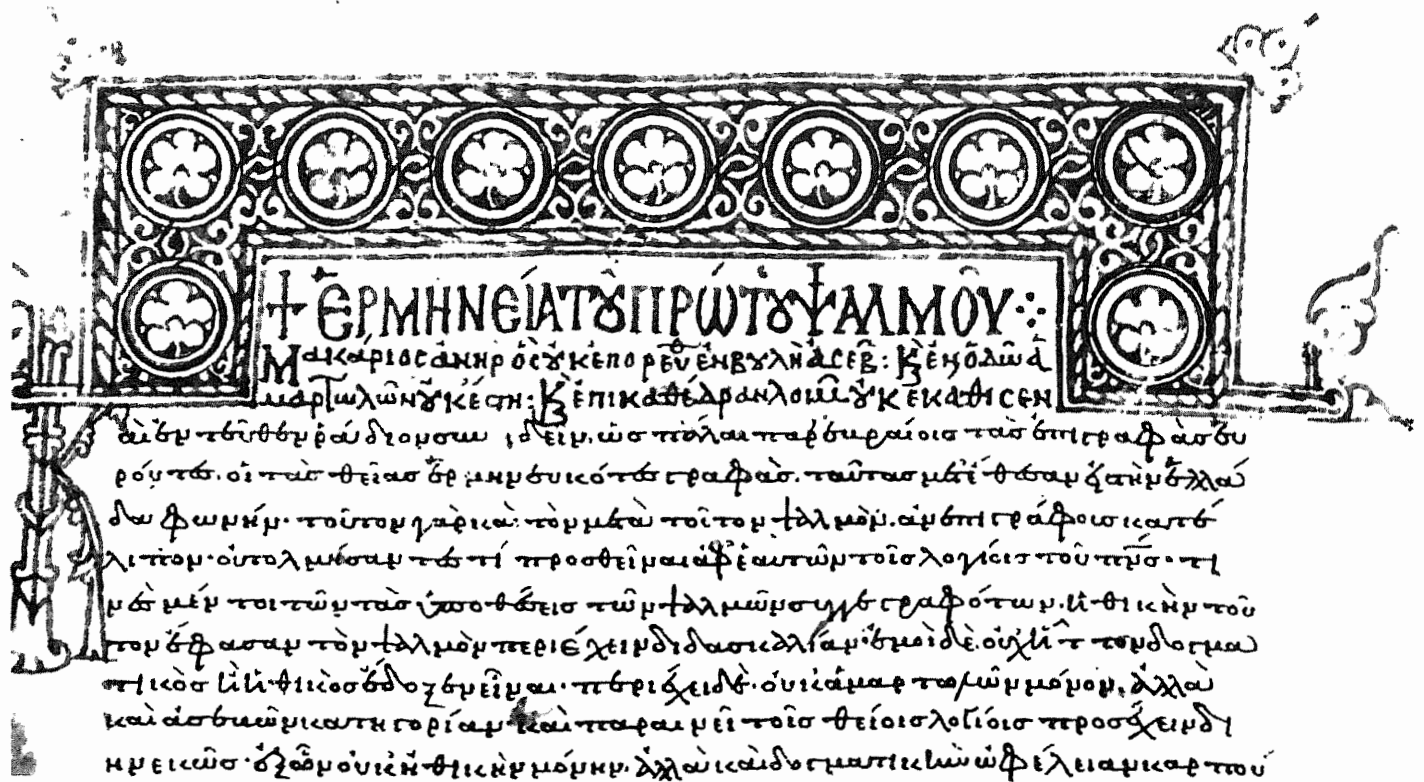 + ἘΡΜΗΝΕΊΑ ΤΟΥ͂ ΠΡΏΤΟΥ ΨΑΛΜΟΥ͂ ⁘
Μακάριος ἀνὴρ ὃς οὐκ ἐπορεύθ ἐν βουλῆ ἀσεβ: κ ἐν ὁδῶ ἁ
μαρτωλῶν οὐκ ἔστη: κ ἐπὶ καθέδραν λοιμ οὐκ ἐκάθισεν
ἐντεῦθεν ῥάδιον ἰδεῖν, ὡς πάλαι παρ ἑβραίοις τὰς ἐπιγραφὰς εὑ
ρόντες. οἱ τὰς θείας ἑρμηνευκότες γραφὰς. ταύτας μετέθεσαν εἰς τὴν ἑλλά
δα φωνήν. τοῦτον γὰρ καὶ τὸν μετὰ τοῦτον ψαλμὸν. ἀνεπιγράφοις κατέ
λιπον. οὐ τολμήσαντές τί προσθεῖναι ἀφ ἑαυτῶν τοῖς λογίοις τοῦ πνς. τι
νὲς μέντοι τῶν τὰς ὑποθέσεις τῶν ψαλμῶν συγγεγραφότων. ἠθικὴν τοῦ
τον ἔφασαν τὸν ψαλμὸν περιέχειν διδασκαλίαν. ἐμοὶ δὲ. οὐχ ἧττον δογμα
τικὸς ἢ ἠθικὸς ἔδοξεν εἶναι. περιέχει δὲ. οὐκ ἁμαρτωλῶν μόνον. ἀλλὰ
καὶ ἀσεβῶν κατηγορίαν. καὶ παραινεῖ τοῖς θείοις λογίοις προσέχειν δι
ηνεκῶς. ἐξ ὧν οὐκ ἠθικὴν μόνην. ἀλλὰ καὶ δογματικὴν ὠφέλειαν καρπου